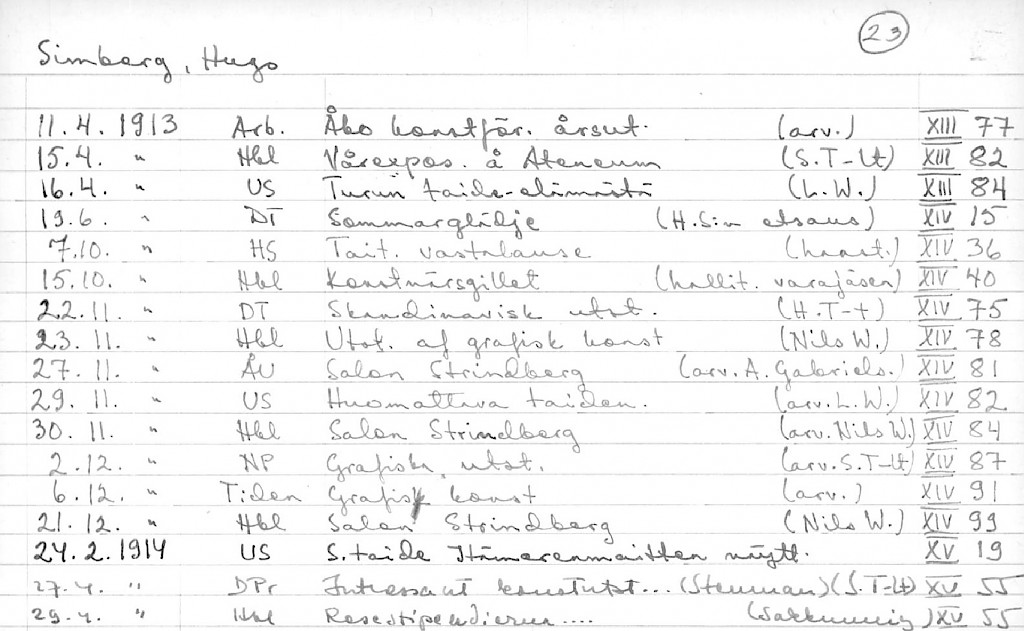 23
Simberg, Hugo
11.4. 1913 Arb. Åbo konstför. årsut. (arv.) XIII 77
15.4. " Hbl Vårexpos. å Ateneum (S.T-lt) XIII 82
16.4. " US Turun taide-elämästä (L.W.) XIII 84
19.6. " DT Sommarglädje (H.S:n etsaus) XIV 15
7.10. " HS Tait. vastalause (kannat.) XIV 36
15.10. " Hbl Konstnärsgillet (hallit. varajäsen) XIV 40
22.11. " DT Skandinavisk utst. (H.T-t) XIV 75
23.11. " Hbl Utst. af grafisk konst (Nils W.) XIV 78
27.11. " ÅU Salon Strindberg (arv. A. Gabriels.) XIV 81
29.11. " US Huomattava taiden. (arv. L.W.) XIV 82
30.11. " Hbl Salon Strindberg (arv. Nils W.) XIV 84
2.12. " NP Grafiska utst. (arv. S.T-lt) XIV 87
6.12. " Tiden Grafisk konst (arv.) XIV 91
21.12. " Hbl Salon Strindberg (Nils W.) XIV 99
24.2.1914 US S.taide Itämerenmaitten näytt. XV 19
27.4. " DPr Intressant konstutst... (Stenman) (S.T-lt) XV 55
29.4. " Hbl Resestipendierna .... XV 55